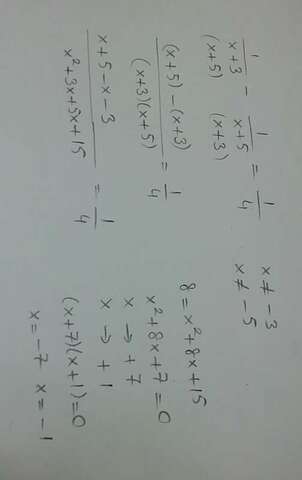 1/(x+3) - 1/(x+5) = 1/4
(x+5) (x+3)
((x+5)-(x+3))/((x+3)(x+5)) = 1/4
(x+5-x-3)/(x²+3x+5x+15) = 1/4
x ≠ -3
x ≠ -5
8 = x²+8x+15
x²+8x+7=0
x → +7
x → +1
(x+7)(x+1)=0
x=-7 x=-1